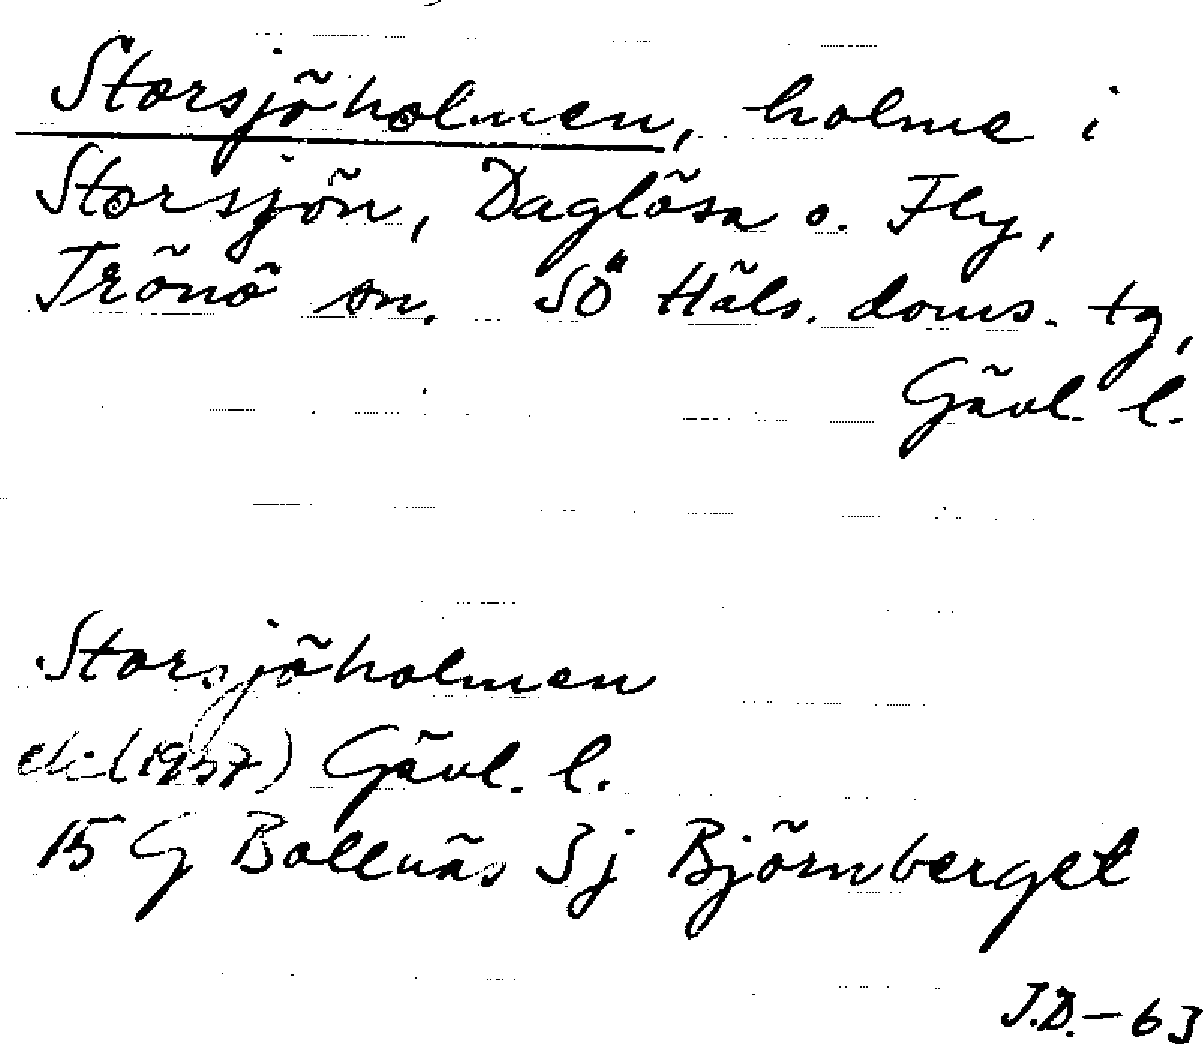 Storsjöholmen, holme i
Storsjön, Daglösa o. Fly,
Trönö sn. SÖ Häls. doms. tg,
Gävl. l.
Storsjöholmen
ek (1957) Gävl. l.
15 G Bollnäs 3j Björnberget
J.D. - 63